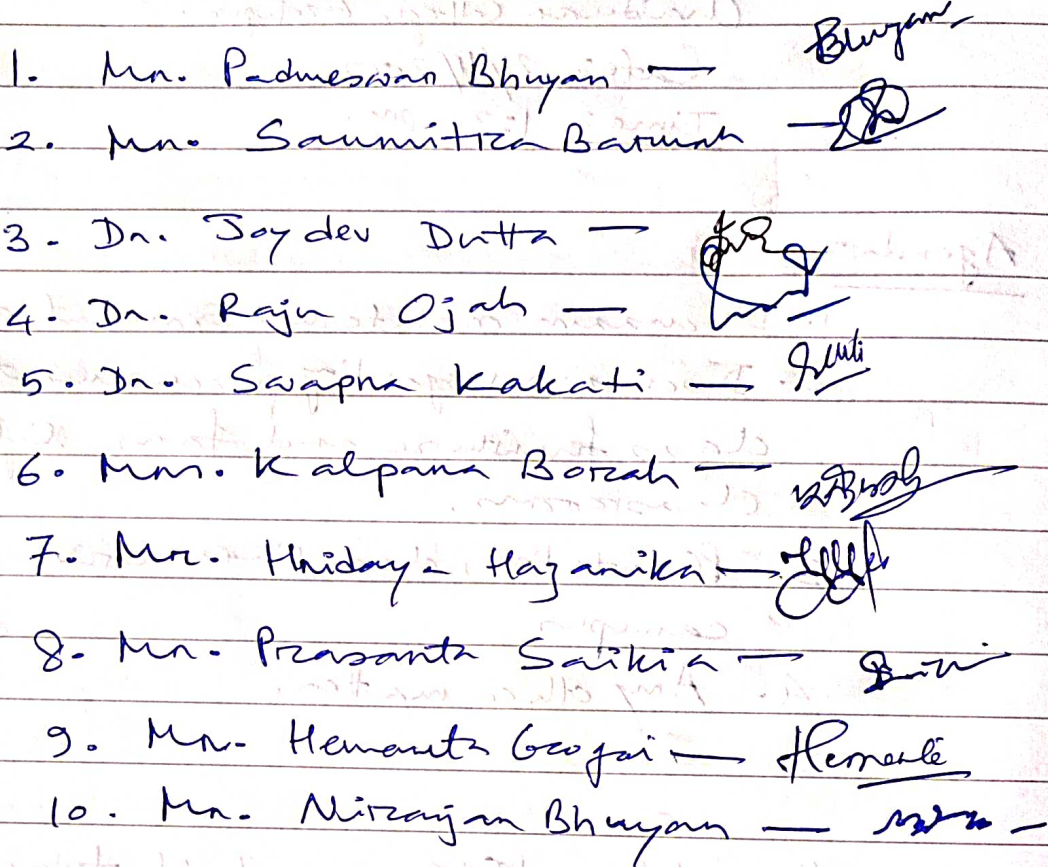 1. Mr. Padmeswar Bhuyan — Bhuyan
2. Mr. Saumitra Baruah —
3. Dr. Joydev Dutta —
4. Dr. Raju Ojah —
5. Dr. Swapna Kakati —
6. Mrs. Kalpana Borah —
7. Mr. Hridaya Hazarika —
8. Mr. Prasanta Saikia —
9. Mr. Hemanta Gogoi — Hemanta
10. Mr. Niranjan Bhuyan —